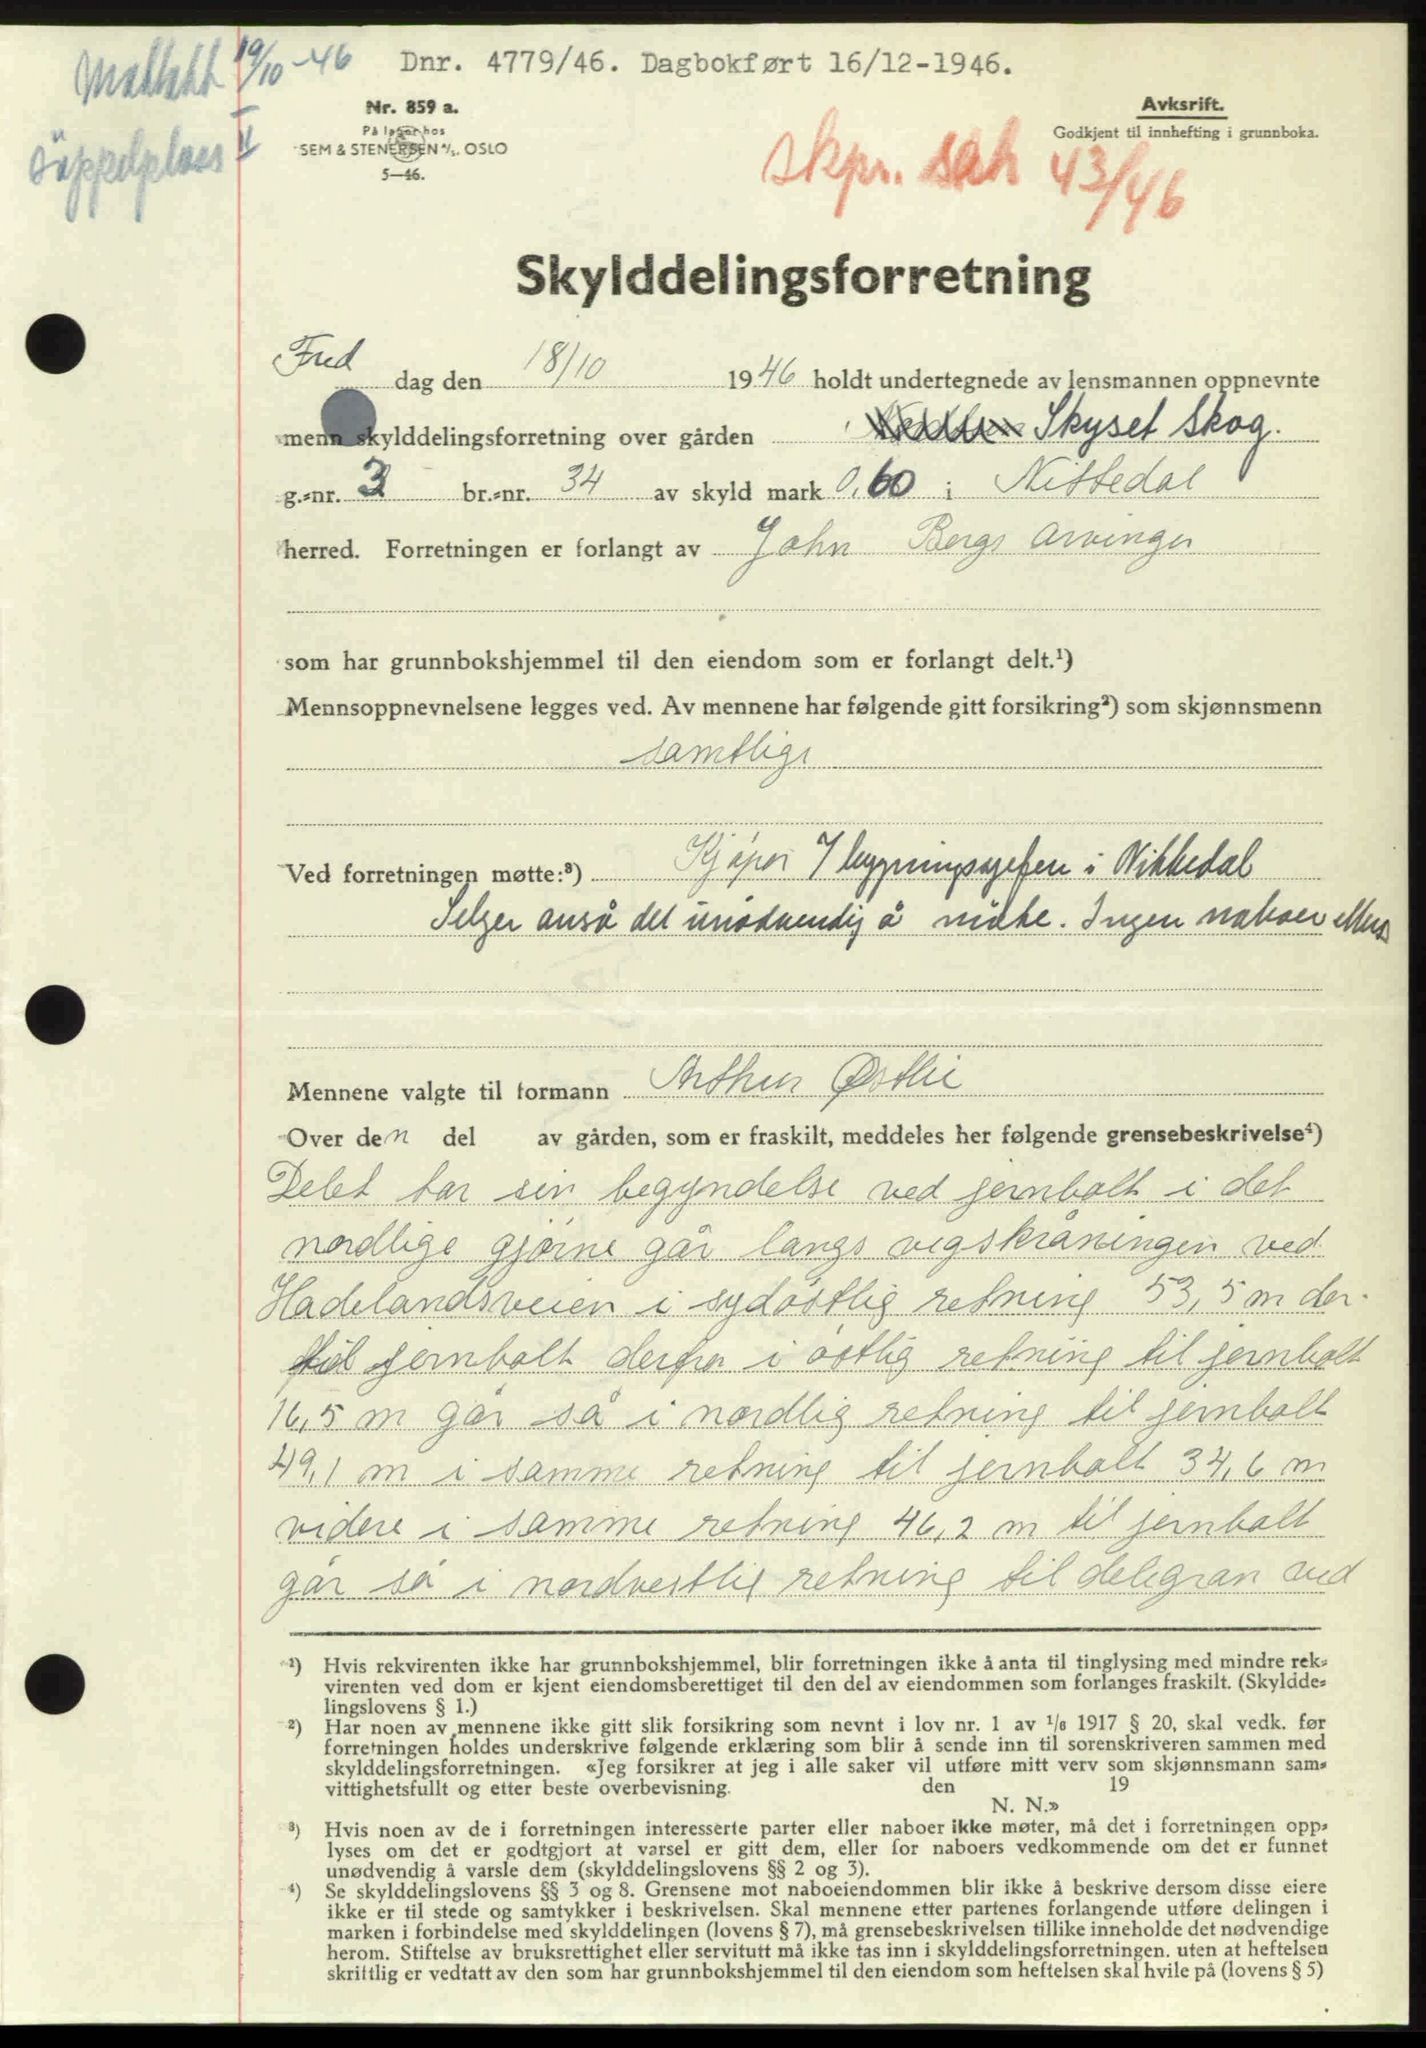 Mottatt 19/10-46
Søppelplass II
Dnr. 4779/46. Dagbokført 16/12-1946.
Nr. 859 a.
På lager hos
SEM & STENERSEN A/S. OSLO
5—46.
Avksrift.
Godkjent til innhefting i grunnboka.
skpr. sak 43/46
Skylddelingsforretning
Fred dag den 18/10 1946 holdt undertegnede av lensmannen oppnevnte
menn skylddelingsforretning over gården Skyset Skog.
g.-nr. 3 br.-nr. 34 av skyld mark 0,60 i Nittedal
herred. Forretningen er forlangt av John Bergs Arvinger
som har grunnbokshjemmel til den eiendom som er forlangt delt.¹)
Mennsoppnevnelsene legges ved. Av mennene har følgende gitt forsikring²) som skjønnsmenn
samtlige
Ved forretningen møtte:³) Kjøper v/ bygningssjefen i Nittedal
Selger anså det unødvendig å møte. Ingen naboer ellers
Mennene valgte til formann Arthur Østlie
Over den del av gården, som er fraskilt, meddeles her følgende grensebeskrivelse⁴)
Delet tar sin begyndelse ved jernbolt i det
nordlige hjørne går langs vegskråningen ved
Hadelandsveien i sydøstlig retning 53,5 m der-
til jernbolt derfra i østlig retning til jernbolt
16,5 m går så i nordlig retning til jernbolt
49,1 m i samme retning til jernbolt 34,6 m
videre i samme retning 46,2 m til jernbolt
går så i nordvestlig retning til delegran ved
¹) Hvis rekvirenten ikke har grunnbokshjemmel, blir forretningen ikke å anta til tinglysing med mindre rek-
virenten ved dom er kjent eiendomsberettiget til den del av eiendommen som forlanges fraskilt. (Skyldde-
lingslovens § 1.)
²) Har noen av mennene ikke gitt slik forsikring som nevnt i lov nr. 1 av 1/6 1917 § 20, skal vedk. før
forretningen holdes underskrive følgende erklæring som blir å sende inn til sorenskriveren sammen med
skylddelingsforretningen. «Jeg forsikrer at jeg i alle saker vil utføre mitt verv som skjønnsmann sam-
vittighetsfullt og etter beste overbevisning. den 19
N. N.»
³) Hvis noen av de i forretningen interesserte parter eller naboer ikke møter, må det i forretningen opp-
lyses om det er godtgjort at varsel er gitt dem, eller for naboers vedkommende om det er funnet
unødvendig å varsle dem (skylddelingslovens §§ 2 og 3).
⁴) Se skylddelingslovens §§ 3 og 8. Grensene mot naboeiendommen blir ikke å beskrive dersom disse eiere
ikke er til stede og samtykker i beskrivelsen. Skal mennene etter partenes forlangende utføre delingen i
marken i forbindelse med skylddelingen (lovens § 7), må grensebeskrivelsen tillike inneholde det nødvendige
herom. Stiftelse av bruksrettighet eller servitutt må ikke tas inn i skylddelingsforretningen. uten at heftelsen
skriftlig er vedtatt av den som har grunnbokshjemmel til den eiendom som heftelsen skal hvile på (lovens § 5)